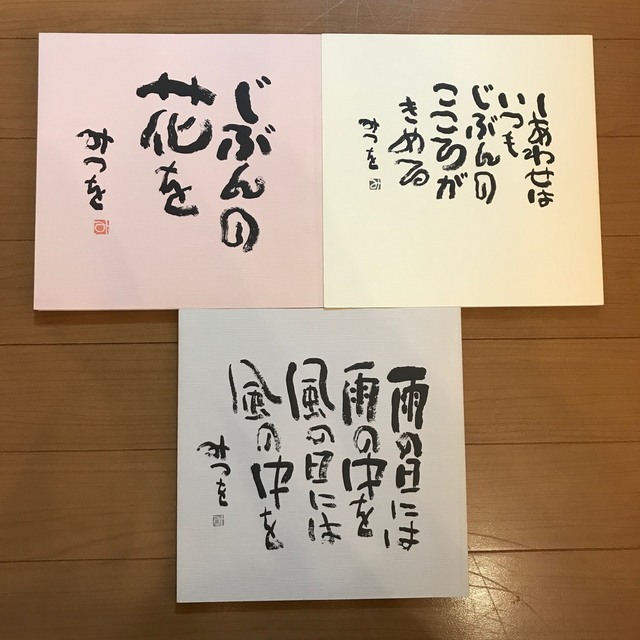 じぶんの
花を
みつを
しあわせは
いつも
じぶんの
こころが
きめる
みつを
雨の日には
雨の中を
風の日には
風の中を
みつを